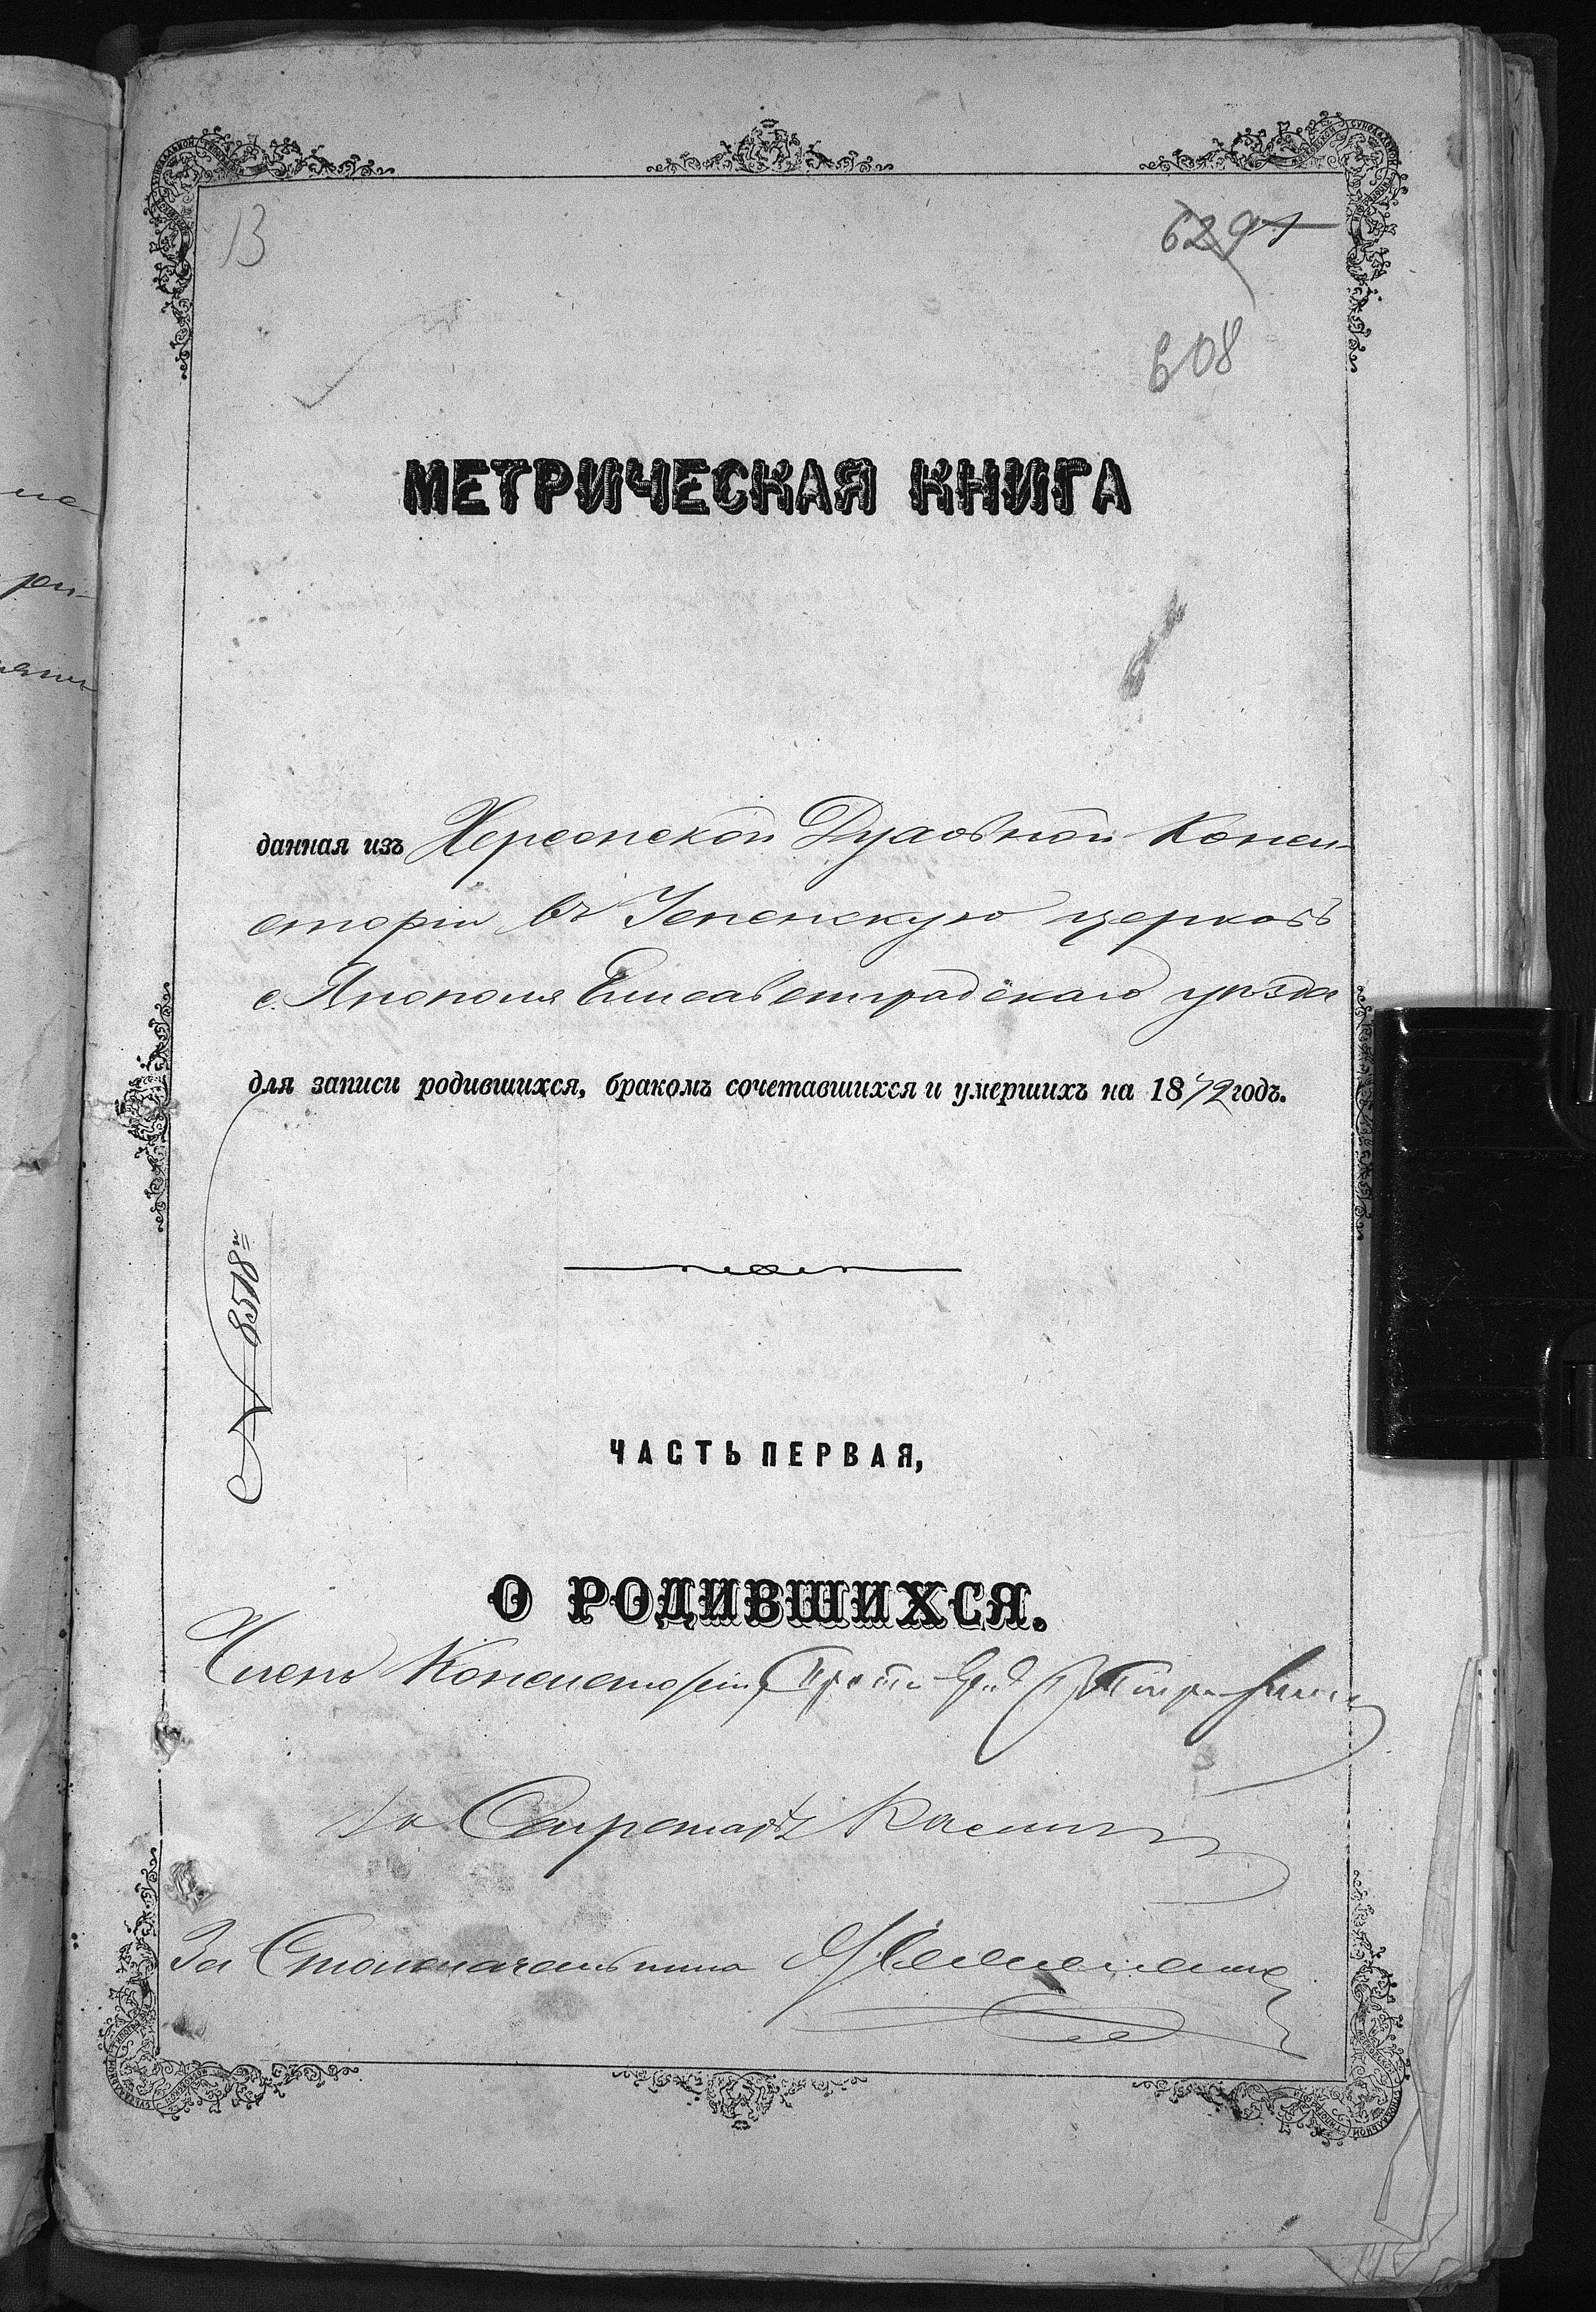 13
6291
608
МЕТРИЧЕСКАЯ КНИГА
данная изъ Херсонской Духовной Конси-
сторіи въ Успенскую церковь
с. Елисаветградскаго уѣзда
для записи родившихся, бракомъ сочетавшихся и умершихъ на 1872 годъ.
№ 8518
ЧАСТЬ ПЕРВАЯ,
О РОДИВШИХСЯ.
Членъ Консисторіи,
Секретарь
За Столоначальника